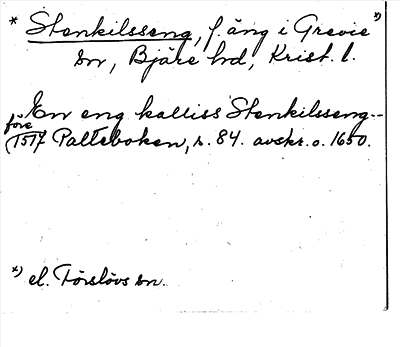 * Stenkilsseng, f. äng i Grevie *)
sn, Bjäre hd, Krist. l.
En eng kalliss Stenkilsseng --
före
(1517 Palteboken, s. 84. avskr. o. 1650.
*) el. Förslövs sn.